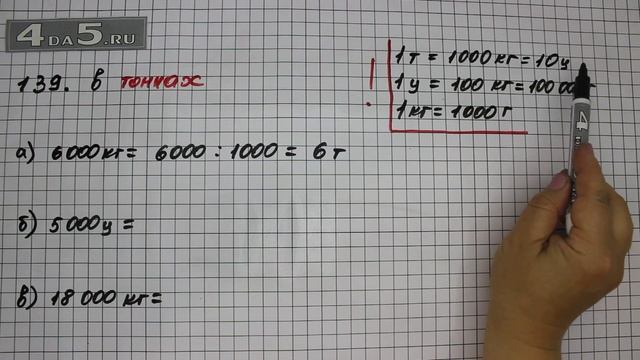 4DA5.RU
139. в тоннах
! 1т = 1000кг = 10ц
1ц = 100 кг = 100 000г
1кг = 1000г
а) 6000кг = 6000 : 1000 = 6т
б) 5000ц =
в) 18 000 кг =